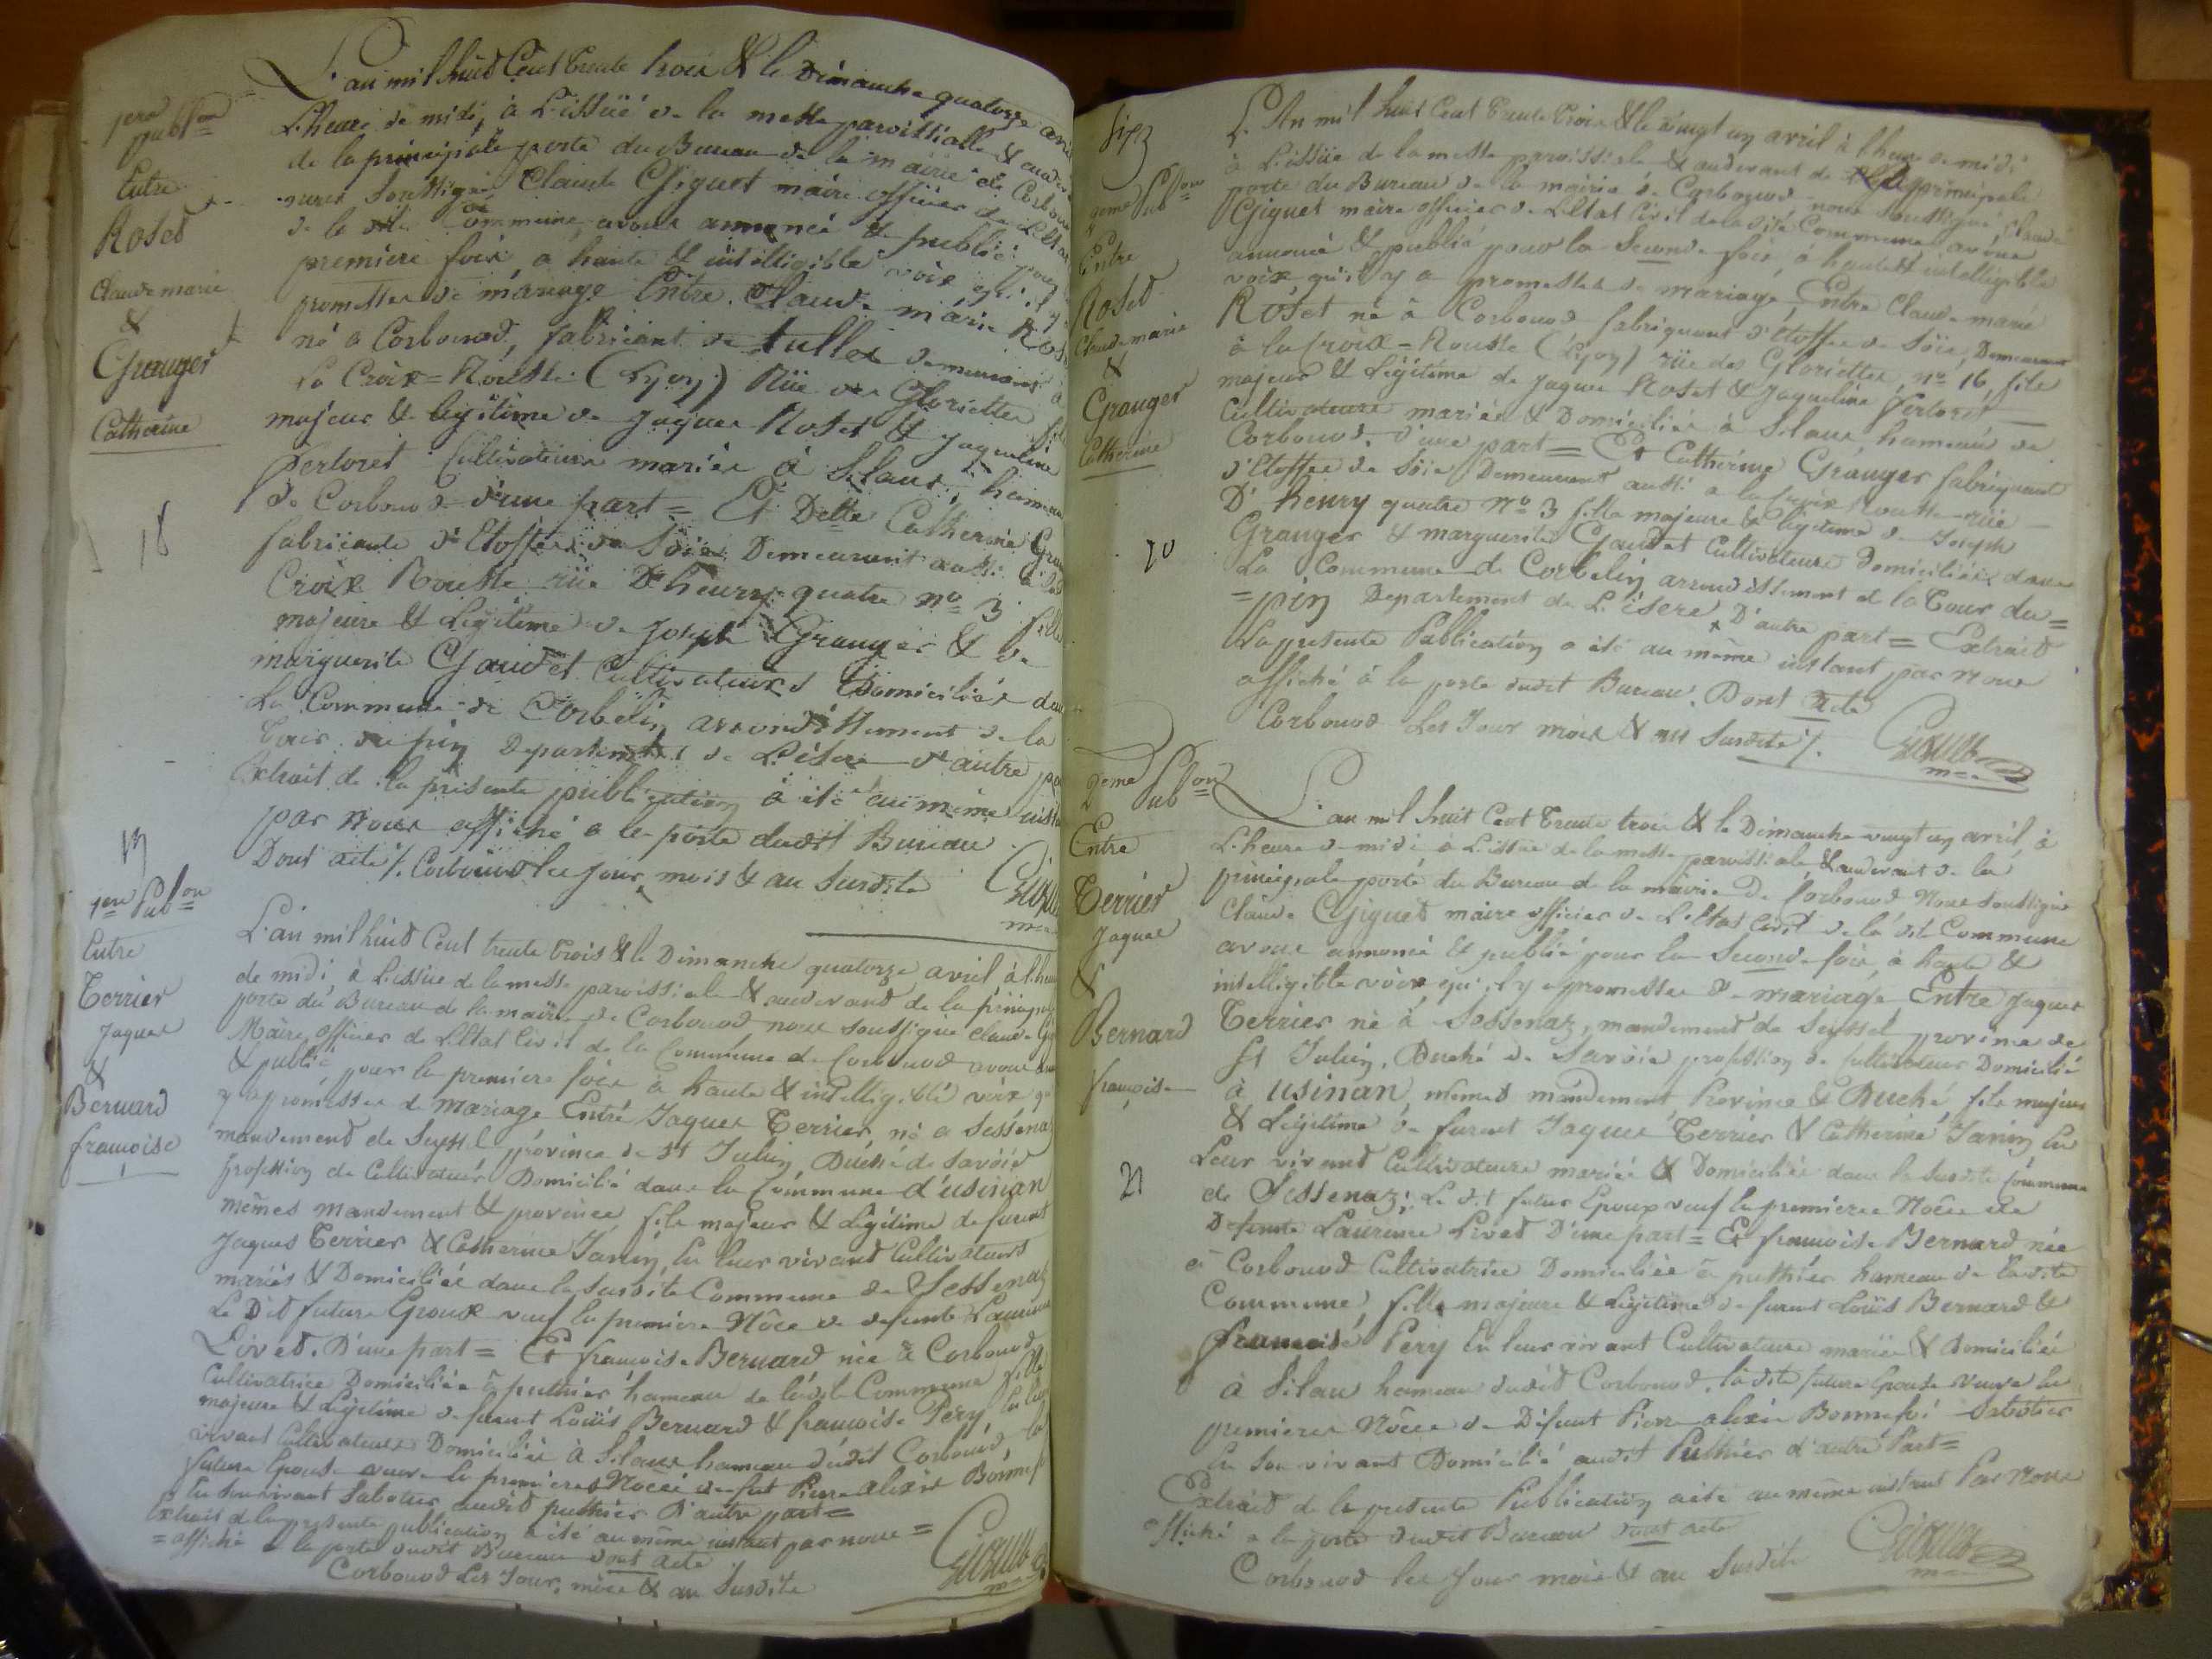 1ere publon
Entre
Roset
Claude marie
&
Granger
Catherine
18
L'an mil huit Cent trente trois & le Dimanche quatorze avril
L'heure de midi, à L'issüe de la messe paroissialle & audevant
de la principale porte du Bureau de la mairie de Corbonod
nous soussigné Claude Giguet maire officier de L'Etat
de la dite Commune, avons annoncé & publié pour
premiere fois à haute & intelligible voix qu'il y
promesses de mariage Entre Claude marie Ros
né a Corbonod, fabricant de tulles demeurant à
La Croix=Rousse (Lyon) Rüe des Gloriettes fils
majeur & légitime de Jaques Roset & Jaqueline
Pertoret Cultivateurs mariés à Silans, hameau
de Corbonod d'une part = Et Delle Catherine Gran
fabricante d'Etoffes de Soie Demeurant aussi à la
Croix Rousse rüe D'henry quatre no 3 fille
majeure & Légitime de Joseph Granger & de
marguerite Gaudet Cultivateurs Domiciliés dans
La Commune de Corbelin arrondissement de la
Tour du pin Departement de L'isere d'autre pa
Extrait de la présente publication à été au même insta
par nous affiché a la porte dudit Bureau
Dont acte /. Corbonod les jour, mois & an Susdits
19
1ere Pubon
Entre
Terrier
Jaques
&
Bernard
françoise
L'an mil huit Cent trente trois & le Dimanche quatorze avril à l'heure
de midi, à L'issüe de la messe paroissiale & audevant de la principale
porte du Bureau de la mairie de Corbonod nous soussigné Claude Gi
Maire, officier de L'Etat Civil de la Commune de Corbonod avons ann
& publié pour la premiere fois à haute & intelligible voix qu
y a promesses de mariage Entre Jaques Terrier, né a Sessena
mandement de Seyssel province de St Julien, Duché de Savoie
profession de Cultivateur Domicilié dans la Commune d'usinan
mêmes mandement & province, fils majeur & Légitime de furent
Jaques Terrier & Catherine Janin, En leur vivant Cultivateurs
mariés & Domiciliés dans la susdite Commune de Sessenaz
Le Dit futur Epoux veuf En premiere Nôce de defunte Laurence
Livet. D'une part = Et françoise Bernard née à Corbonod
Cultivatrice Domiciliée à puthier hameau de ladite Commune fille
majeure & Légitime de furent Louis Bernard & françoise Péry, En leur
vivant Cultivateurs Domiciliés à Silans hameau dudit Corbonod, la
future Epouse veuve En premieres Nôces de fut Pierre alexis Bonnef
En son vivant Sabotier audit puthier D'autre part =
Extrait de la presente publication a été au même instant par nous =
= affiché a la porte dudit Bureau dont acte
Corbonod Les Jour, mois & an Susdits
2eme Pubon
Entre
Roset
Claude marie
&
Granger
Catherine
20
L'An mil huit Cent trente trois & le vingt un avril à l'heure de midi
à L'issüe de la messe paroissiale & audevant de la principale
porte du Bureau de la mairie de Corbonod nous soussigné, Claude
Giguet maire officier de L'Etat Civil de la dite Commune avons
annoncé & publié pour la Seconde fois, à haute & intelligible
voix qu'il y a promesses de mariage, Entre Claude marie
Roset né à Corbonod fabriquant d'Etoffes de Soie, Demeurant
à la Croix=Rousse (Lyon) rüe des Gloriettes, no 16, fils
majeur & Légitime de Jaques Roset & Jaqueline Pertoret
Cultivateurs mariés & Domiciliés à Silans hameau de
Corbonod. d'une part = Et Catherine Granger fabriquant
d'Etoffes de Soie Demeurant aussi a la Croix Rousse rüe
D'henry quatre No 3 fille majeure & légitime de Joseph
Granger & marguerite Gaudet Cultivateurs Domiciliés dans
La Commune de Corbelin arrondissement de la Tour du =
= pin Departement de L'isere, D'autre part = Extrait
Lapresente Publication a été au même instant par Nous
affiché à la porte dudit Bureau. Dont Acte
Corbonod Les Jour mois & an Susdits /.
2eme Pubon
Entre
Terrier
Jaques
&
Bernard
françoise
21
L'an mil huit Cent trente trois & le Dimanche vingt un avril à
L'heure de midi à L'issüe de la messe paroissiale, & audevant de la
principale porte du Bureau de la mairie De Corbonod Nous soussigné
Claude Giguet maire officier de L'Etat Civil de la dite Commune
avons annoncé & publié pour la Seconde fois, à haute &
intelligible voix qu'il y a promesses de mariage Entre Jaques
Terrier né à Sessenaz, mandement de Seyssel province de
St Julien, Duché de Savoie profession de Cultivateur Domicilié
à usinan mêmes mandement Province & Duché, fils majeur
& Légitime de furent Jaques Terrier & Catherine Janin En
Leur vivant Cultivateurs mariés & Domiciliés dans la Susdite Commune
de Sessenaz; Le dit futur Epoux veuf En premieres Nôces de
Defunte Laurence Livet D'une part = Et françoise Bernard née
à Corbonod Cultivatrice Domiciliée à puthier hameau de ladite
Commune, fille majeure & Légitime de furent Louis Bernard &
françoise Pery En leur vivant Cultivateurs mariés & Domiciliés
à Silan hameau dudit Corbonod. la dite future Epouse veuve En
premieres Nôces de Défunt Pierre alexis Bonnefoi Sabotier
En son vivant Domicilié audit Puthier d'autre Part =
Extrait de la presente Publication a été au même instant Par Nous
affiché a la porte dudit Bureau dont acte
Corbonod les Jour mois & an Susdits